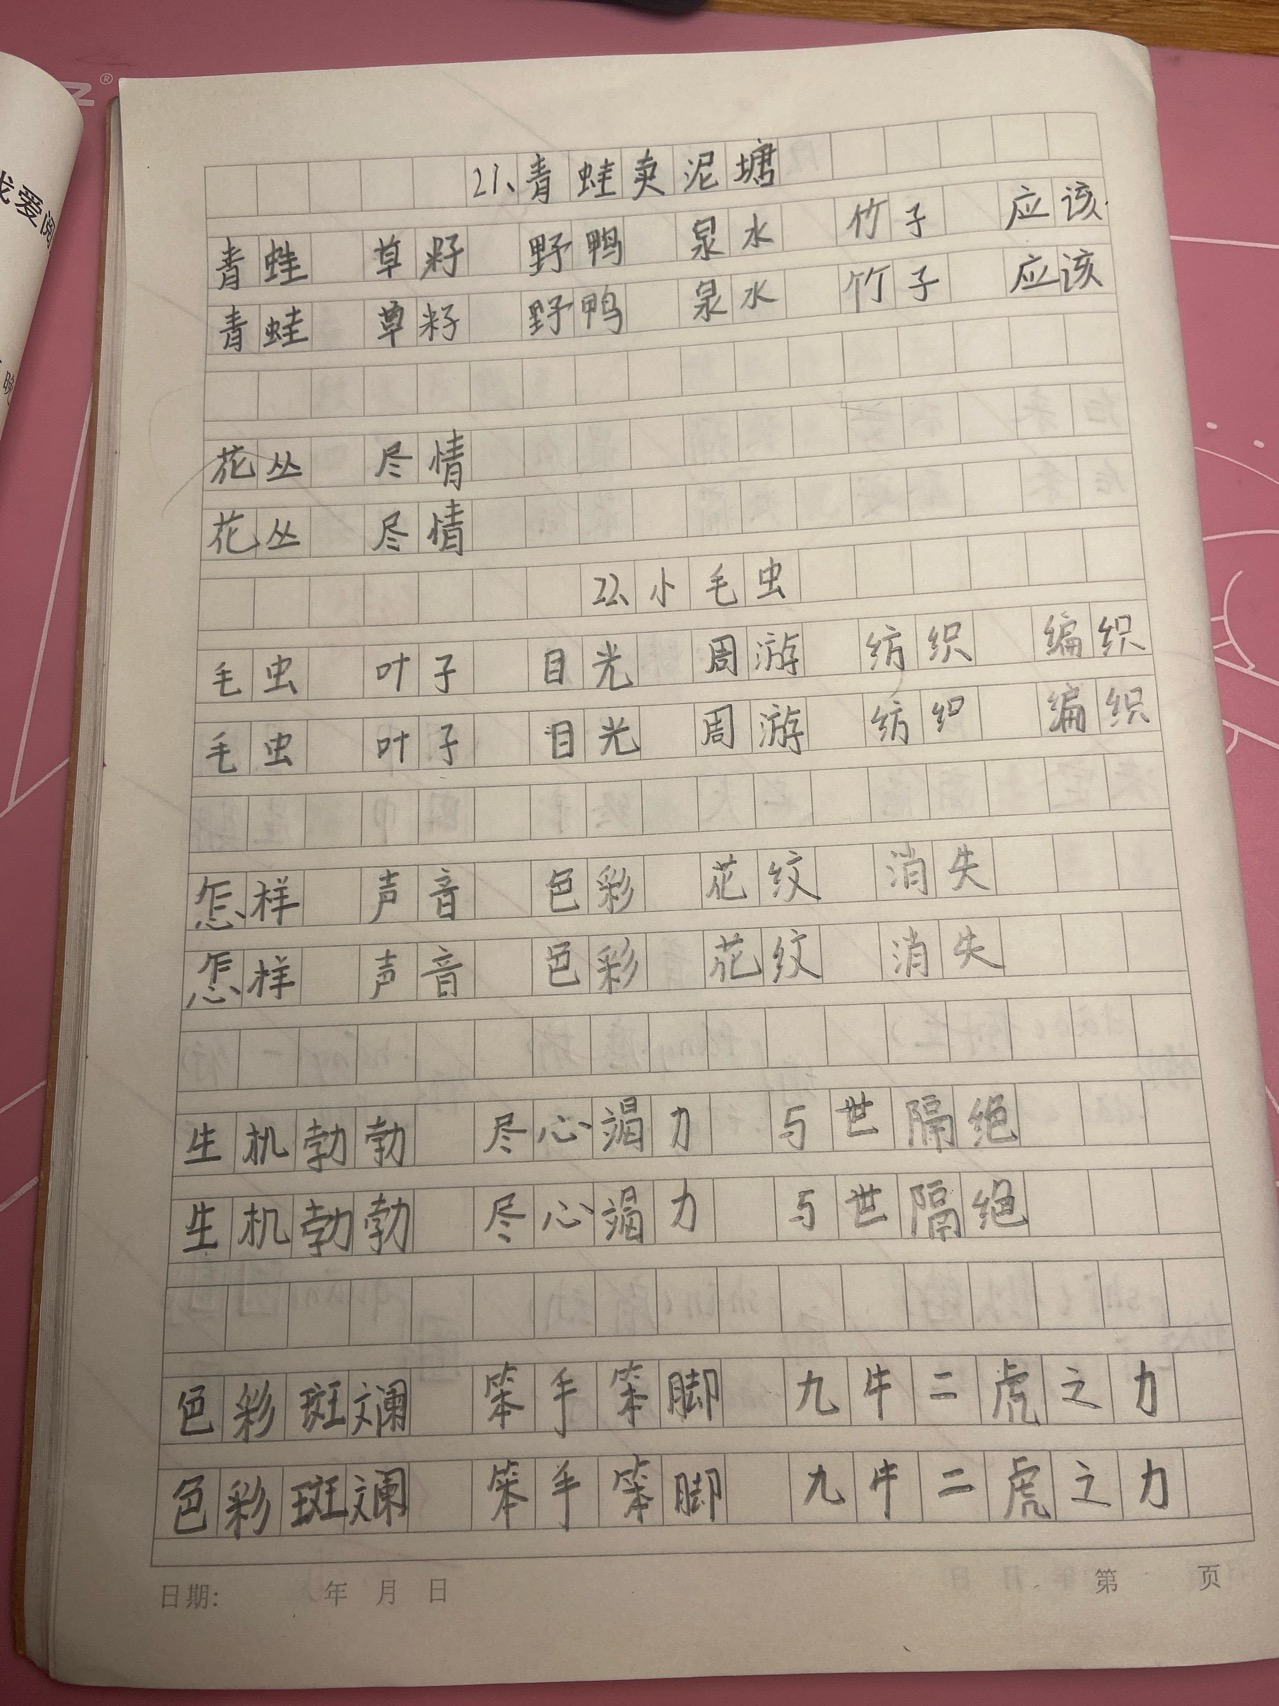 21、青蛙卖泥塘
青蛙 草籽 野鸭 泉水 竹子 应该
青蛙 草籽 野鸭 泉水 竹子 应该
花丛 尽情
花丛 尽情
22、小毛虫
毛虫 叶子 目光 周游 纺织 编织
毛虫 叶子 目光 周游 纺织 编织
怎样 声音 色彩 花纹 消失
怎样 声音 色彩 花纹 消失
生机勃勃 尽心竭力 与世隔绝
生机勃勃 尽心竭力 与世隔绝
色彩斑斓 笨手笨脚 九牛二虎之力
色彩斑斓 笨手笨脚 九牛二虎之力
日期: 年 月 日 第 页
爱阅